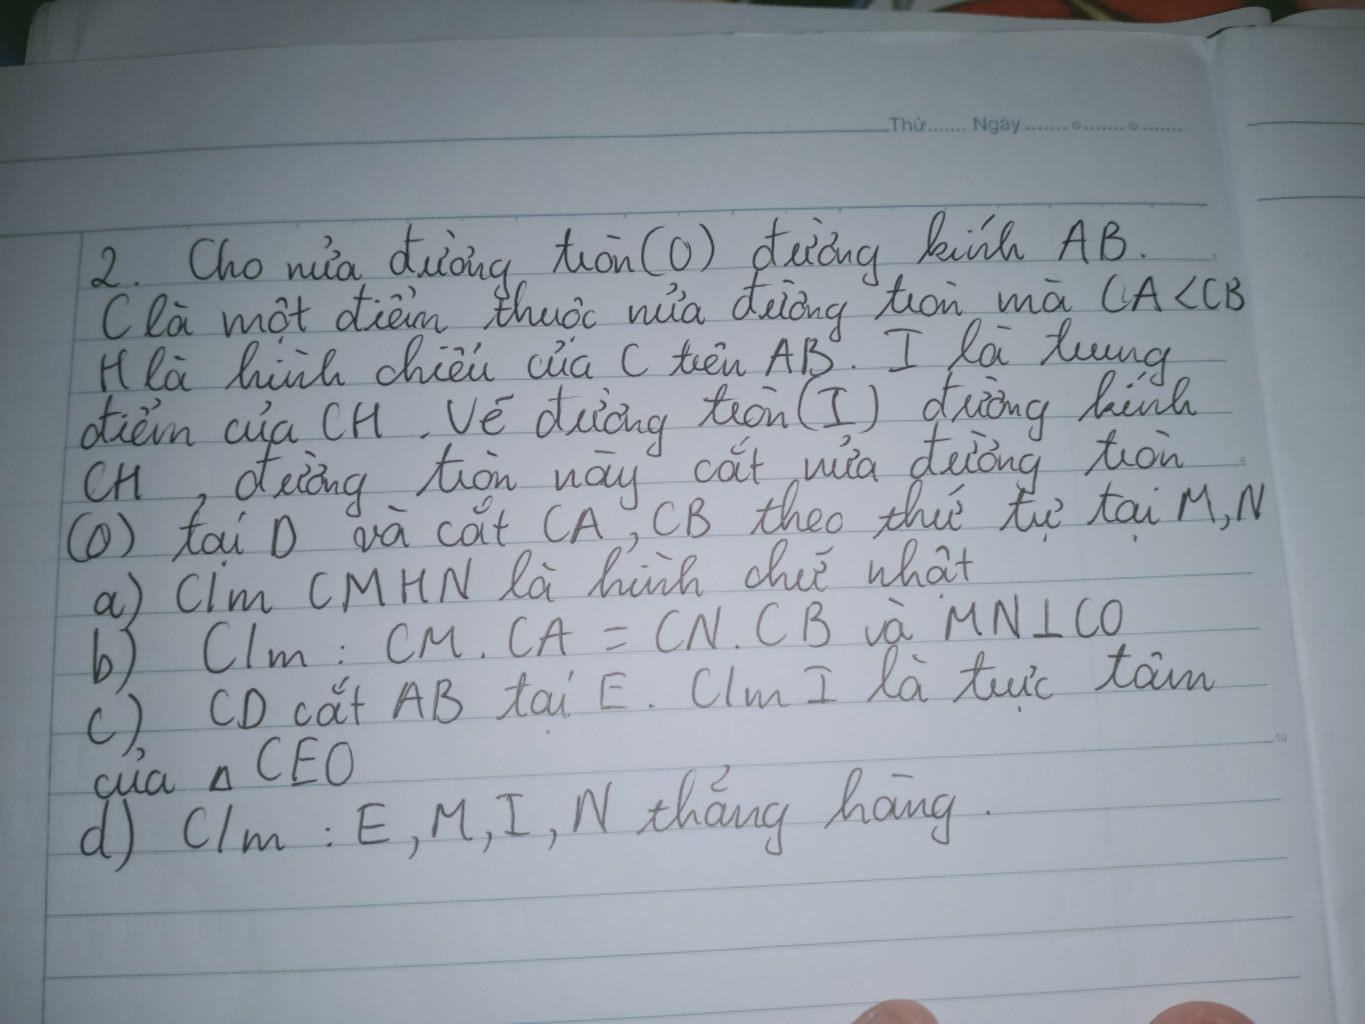 Thứ....... Ngày ....... o ....... o .......
2. Cho nửa đường tròn (O) đường kính AB.
C là một điểm thuộc nửa đường tròn mà CA < CB
H là hình chiếu của C trên AB. I là trung
điểm của CH. Vẽ đường tròn (I) đường kính
CH, đường tròn này cắt nửa đường tròn
(O) tại D và cắt CA, CB theo thứ tự tại M, N
a) C/m CMHN là hình chữ nhật
b) C/m : CM. CA = CN. CB và MN⊥CO
c), CD cắt AB tại E. C/m I là trực tâm
của Δ CEO
10
d) C/m : E, M, I, N thẳng hàng.